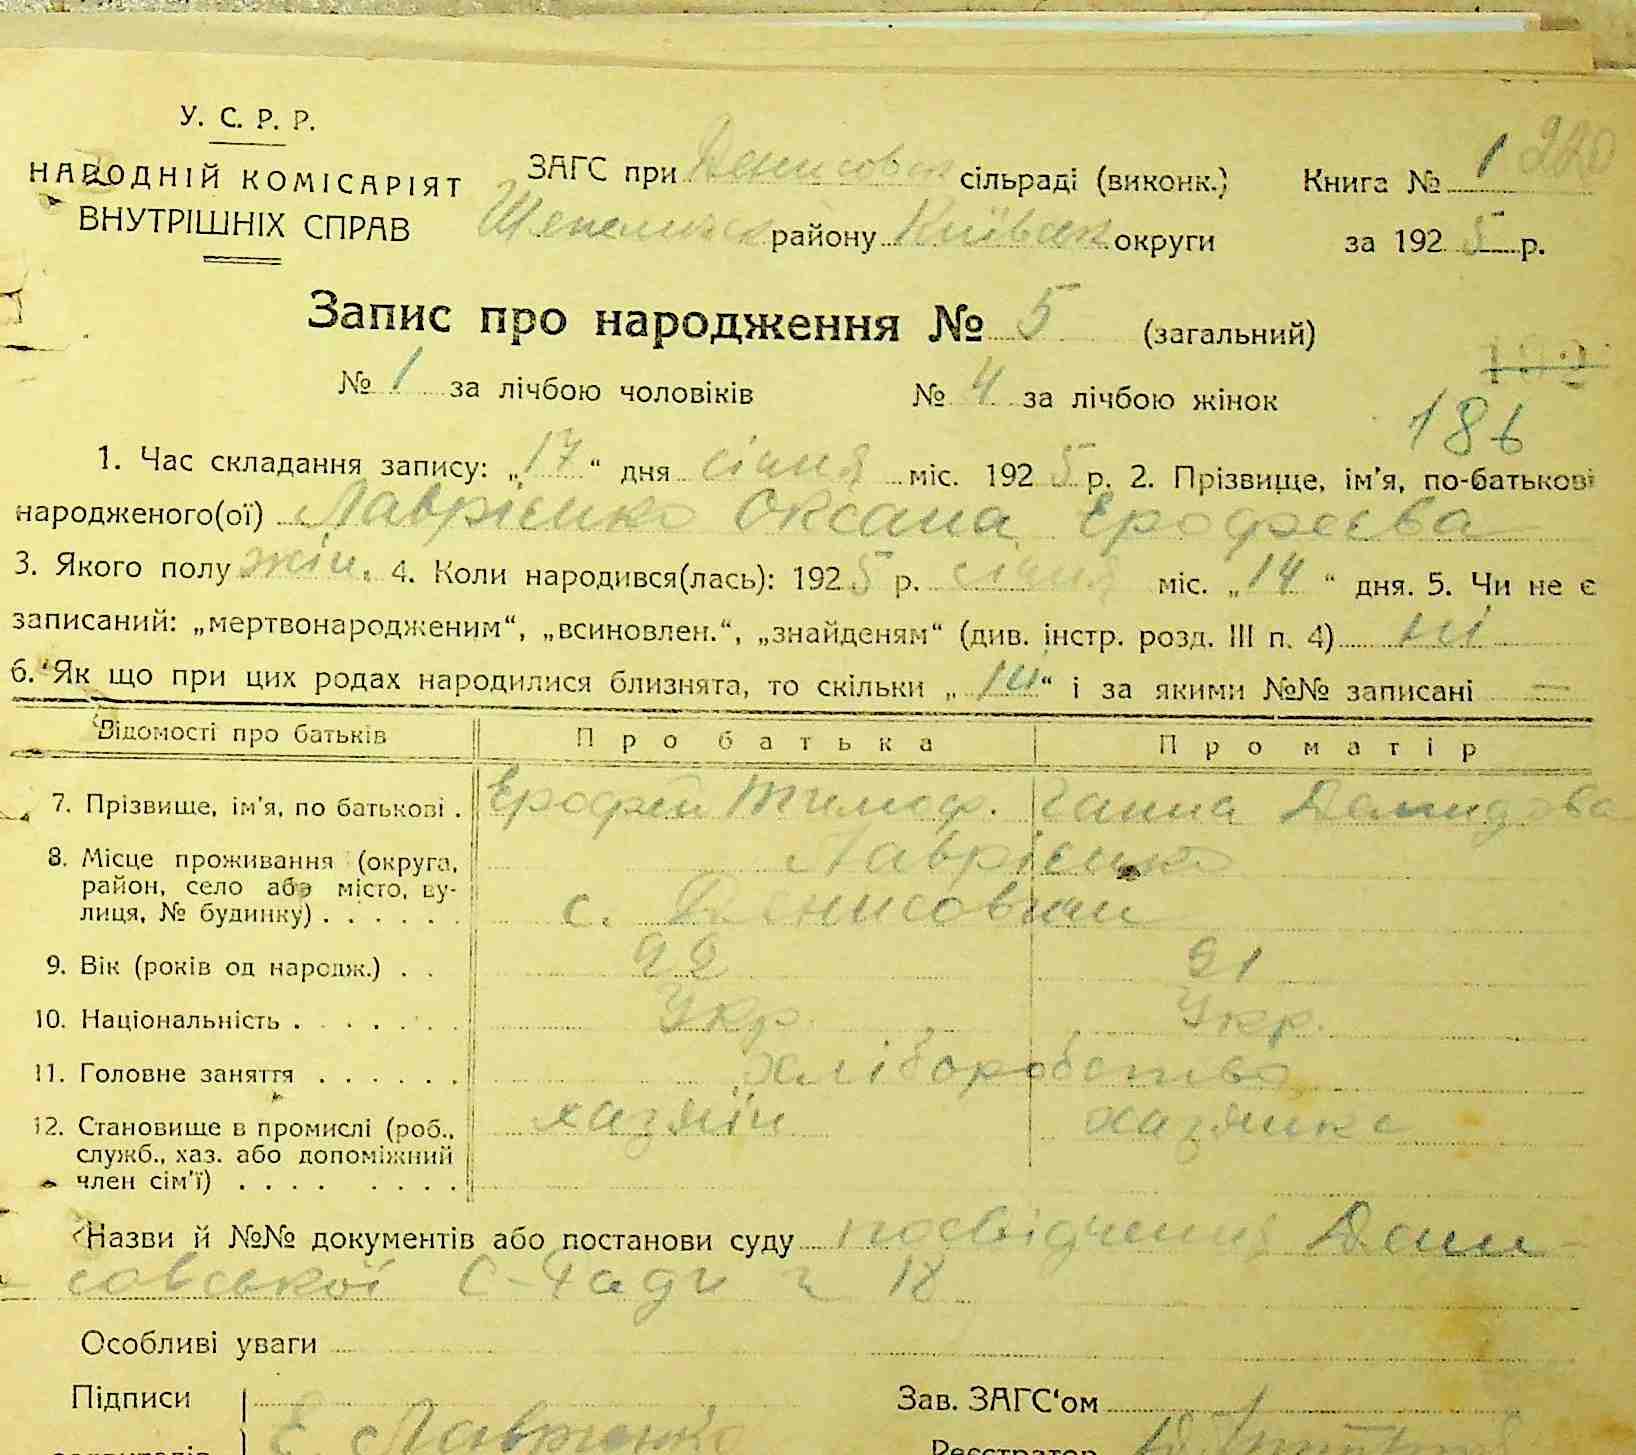 У. С. Р. Р.
НАРОДНІЙ КОМІСАРІЯТ
ВНУТРІШНІХ СПРАВ
ЗАГС при Денисовск сільраді (виконк.) Книга № 1 220
району Київськ округи за 1925 р.
Запис про народження № 5 (загальний)
№ 1 за лічбою чоловіків № 4 за лічбою жінок
186
1. Час складання запису: „17“ дня січня міс. 1925 р. 2. Прізвище, ім'я, по-батькові
народженого(ої) Лаврієнко Оксана Ерофеєва
3. Якого полу жін. 4. Коли народився(лась): 1925 р. січня міс. „14“ дня. 5. Чи не є
записаний: „мертвонародженим“, „всиновлен.“, „знайденям“ (див. інстр. розд. III п. 4) ні
6. Як що при цих родах народилися близнята, то скільки „ “ і за якими №№ записані —
Відомості про батьків Про батька Про матір
7. Прізвище, ім'я, по батькові . Ерофей Тимоф. Ганна Демидова
Лаврієнко
8. Місце проживання (округа,
район, село або місто, ву-
лиця, № будинку) . . . . . . с. Денисовичи
9. Вік (років од народж.) . . 22 21
10. Національність . . . . . . . Укр. Укр.
11. Головне заняття . . . . . . хліборобство
12. Становище в промислі (роб.,
служб., хаз. або допоміжний
член сім'ї) . . . . . . . . хазяїн хазяйка
Назви й №№ документів або постанови суду посвідчення Дени-
совської С-Ради № 18
Особливі уваги
Підписи Зав. ЗАГС'ом
Е Лаврієнко Реєстратор